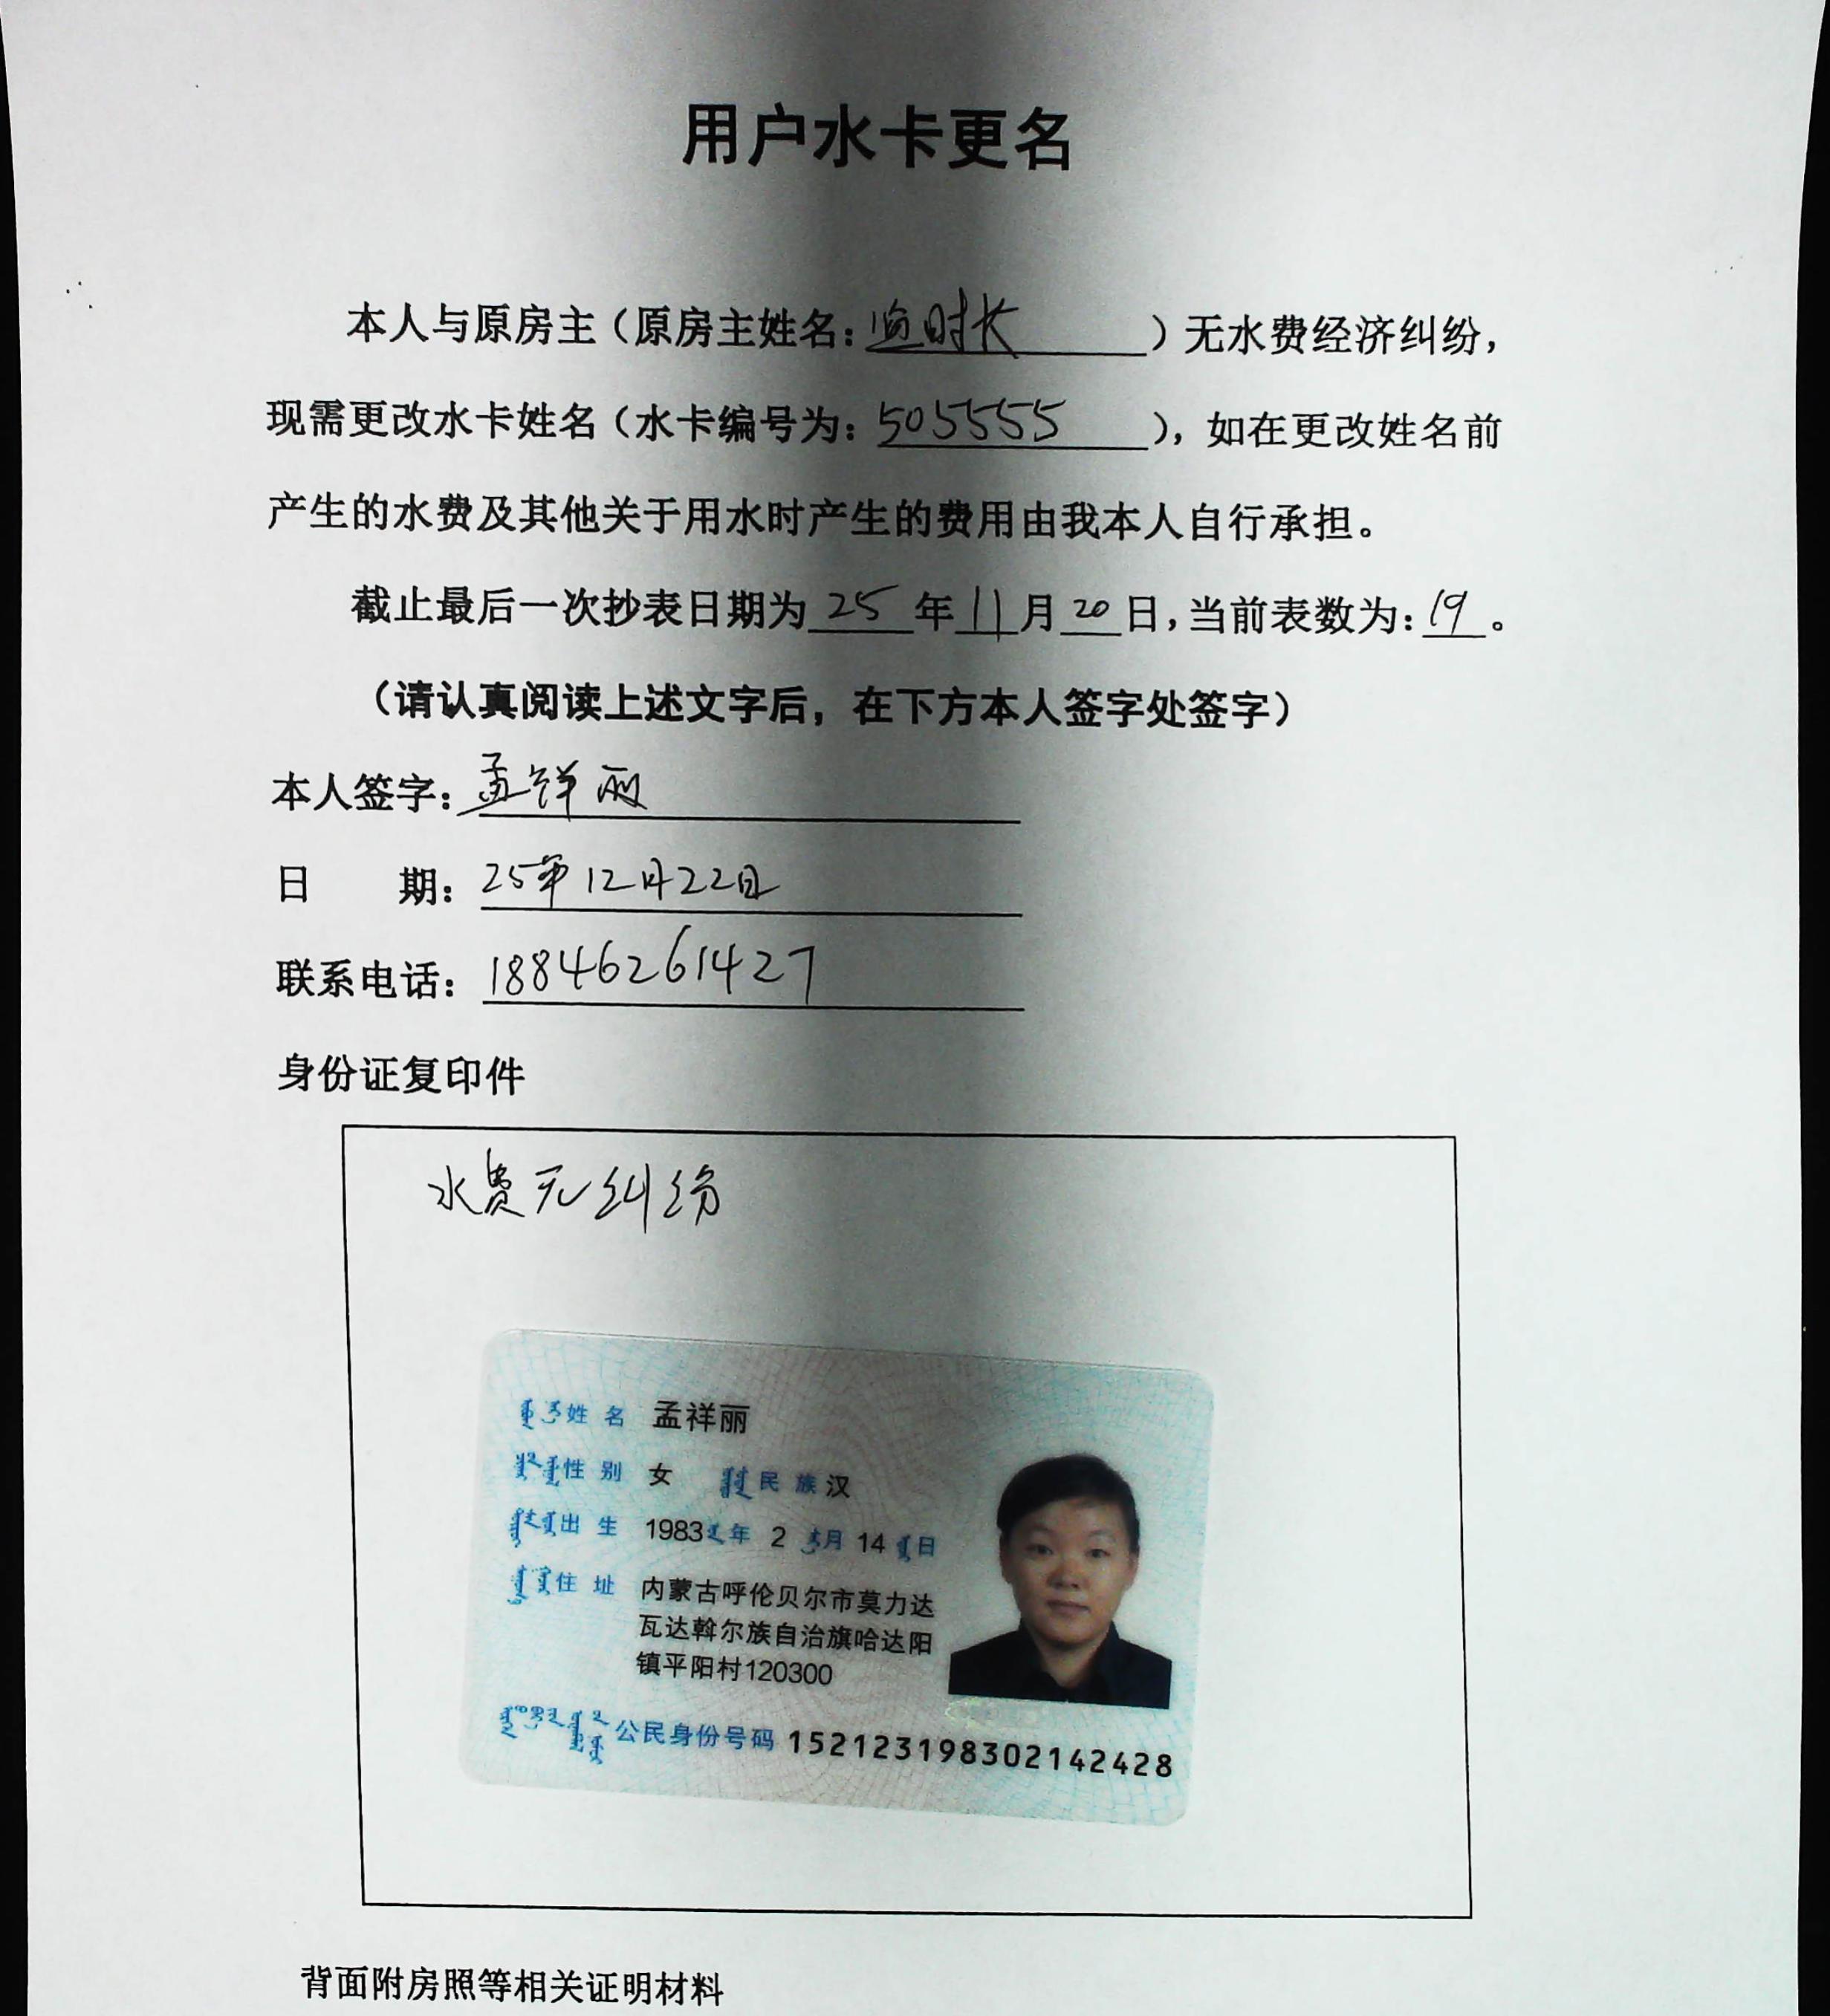 用户水卡更名
本人与原房主（原房主姓名：时长）无水费经济纠纷，
现需更改水卡姓名（水卡编号为：505555），如在更改姓名前
产生的水费及其他关于用水时产生的费用由我本人自行承担。
截止最后一次抄表日期为25年11月20日，当前表数为：19。
（请认真阅读上述文字后，在下方本人签字处签字）
本人签字：孟祥丽
日 期：25年12月22日
联系电话：18846261427
身份证复印件
水费无纠纷
姓名 孟祥丽
性别 女 民族 汉
出生 1983年 2月 14日
住址 内蒙古呼伦贝尔市莫力达
瓦达斡尔族自治旗哈达阳
镇平阳村120300
公民身份号码 152123198302142428
背面附房照等相关证明材料